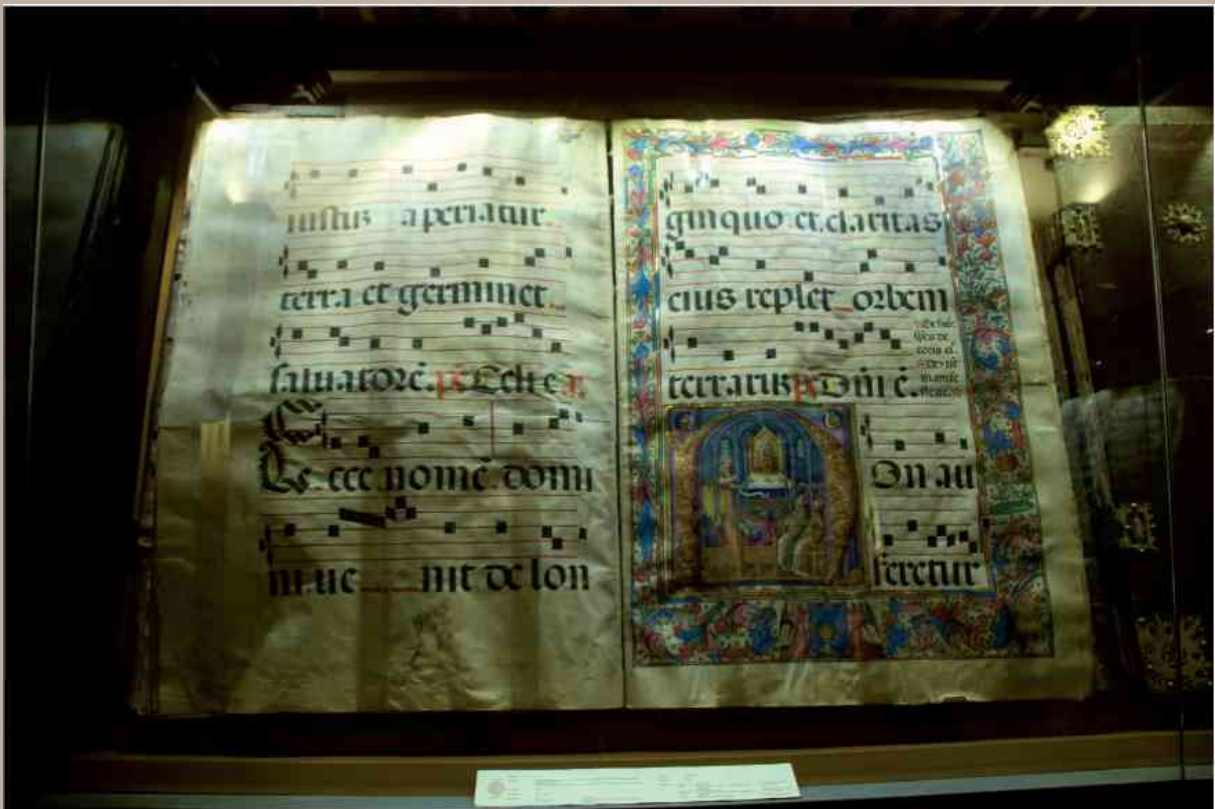 iustus aperiatur
terra et germinet
saluatorē. ps Celi e
Ecce nomē domi
ni ue nit de lon
ginquo et claritas
eius replet orbem
terrarus ps Dn̄i ē.
On au
feretur